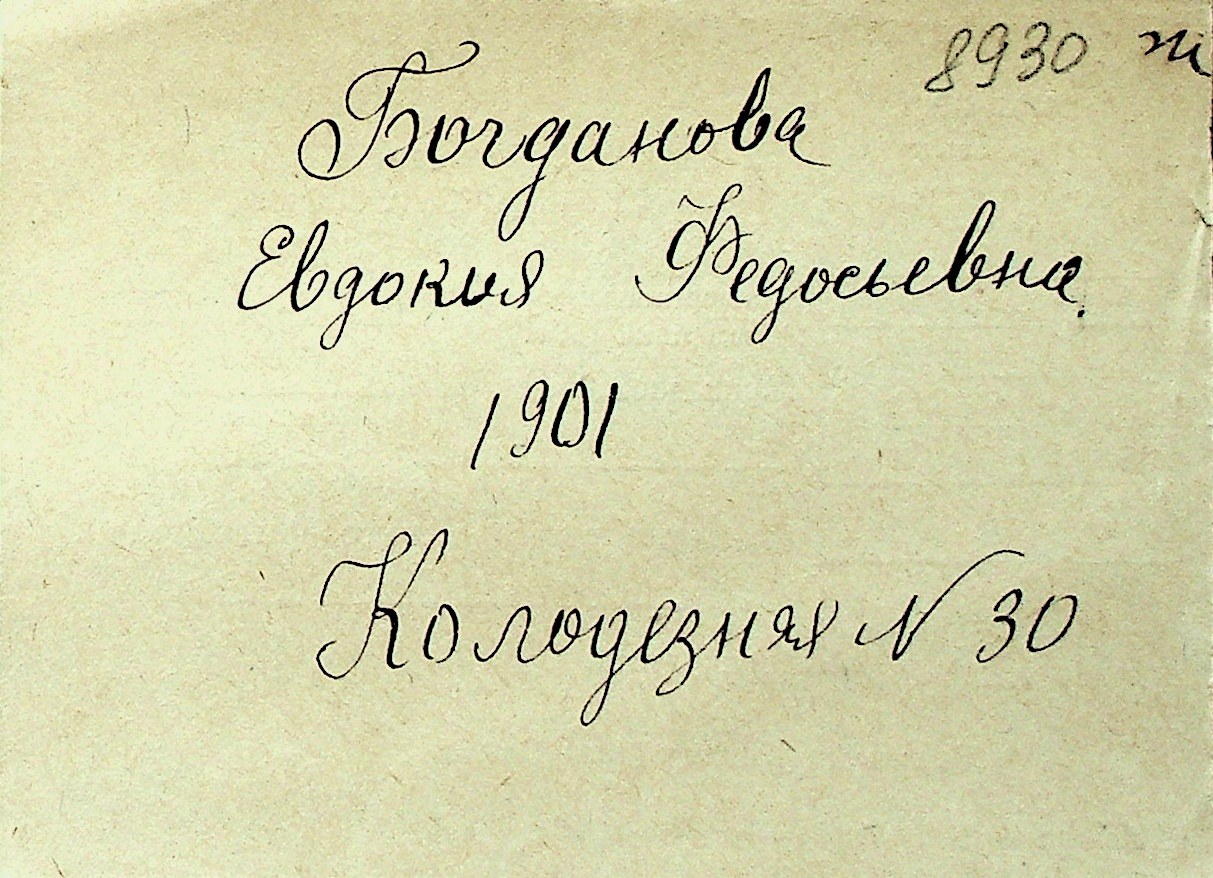 8930 ж
Богданова
Евдокия Федосьевна.
1901
Колодезная N 30